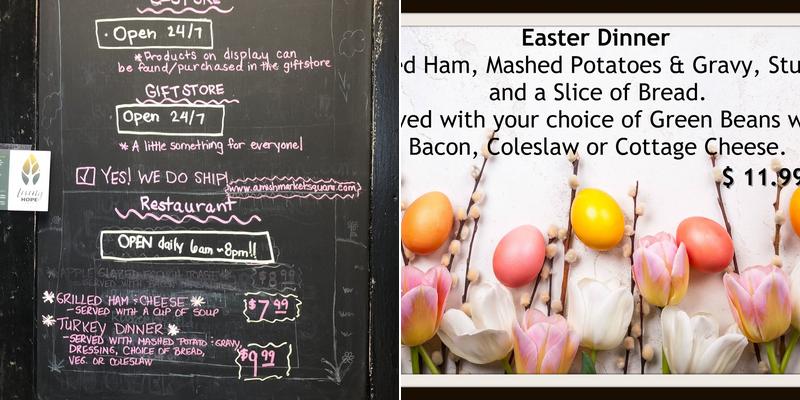 Open 24/7
*Products on display can
be found/purchased in the giftstore
GIFTSTORE
Open 24/7
* A little something for everyone!
YES! WE DO SHIP!
www.amishmarketsquare.com
Restaurant
OPEN daily 6am-8pm!!
APPLE GLAZED FRENCH TOAST
$8.99
SERVED WITH BACON
*GRILLED HAM & CHEESE*
$7.99
-SERVED WITH A CUP OF SOUP
*TURKEY DINNER*
-SERVED WITH MASHED POTATO & GRAVY,
DRESSING, CHOICE OF BREAD,
$9.99
VEG. OR COLESLAW
HOPE
Easter Dinner
ed Ham, Mashed Potatoes & Gravy, Stu
and a Slice of Bread.
ved with your choice of Green Beans w
Bacon, Coleslaw or Cottage Cheese.
$ 11.99